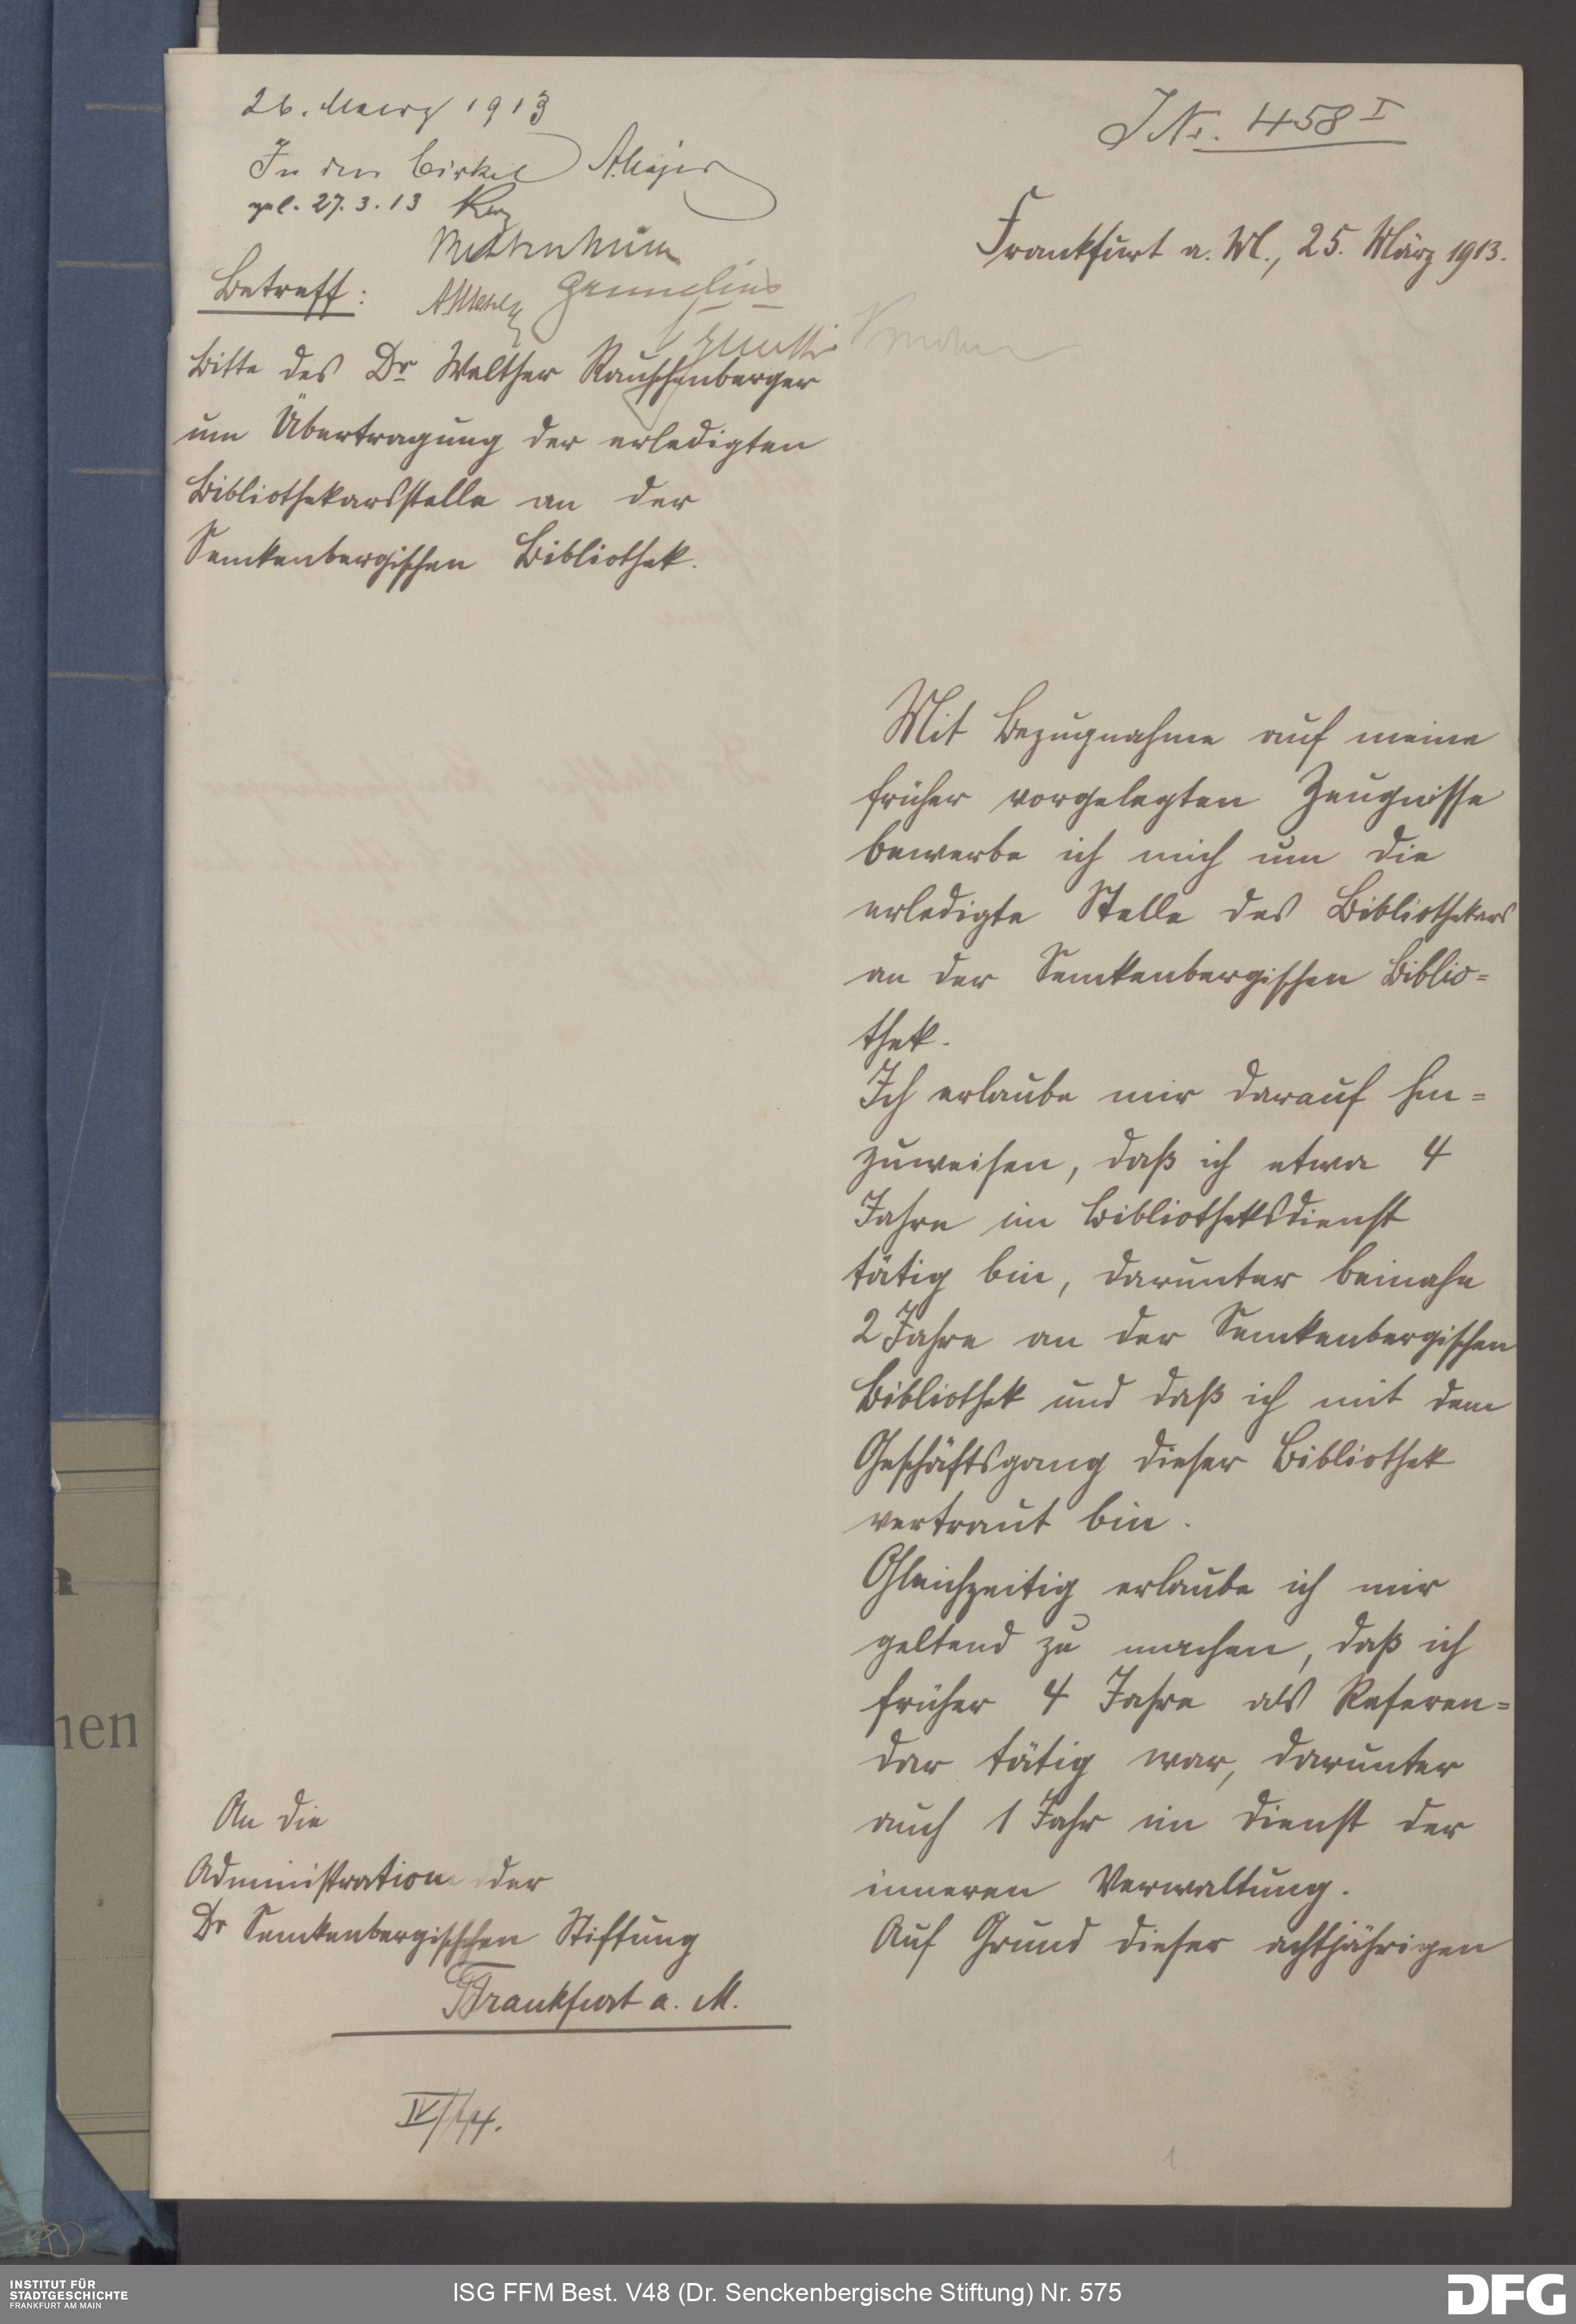 26. Maerz 1913
In den Cirkel
gel. 27.3.13
Betreff:
Bitte des Dr Walther Rauschenberger
um Übertragung der erledigten
Bibliothekarsstelle an der
Senckenbergischen Bibliothek.
An die
Administration der
Dr Senckenbergischen Stiftung
Frankfurt a. M.
IV/44.
JNr. 458 I
Frankfurt a. M., 25. März 1913.
Mit Bezugnahme auf meine
früher vorgelegten Zeugnisse
bewerbe ich mich um die
erledigte Stelle des Bibliothekars
an der Senckenbergischen Biblio=
thek.
Ich erlaube mir darauf hin=
zuweisen, daß ich etwa 4
Jahre im Bibliotheksdienst
tätig bin, darunter beinahe
2 Jahre an der Senckenbergischen
Bibliothek und daß ich mit dem
Geschäftsgang dieser Bibliothek
vertraut bin.
Gleichzeitig erlaube ich mir
geltend zu machen, daß ich
früher 4 Jahre als Referen=
dar tätig war, darunter
auch 1 Jahr im Dienst der
inneren Verwaltung.
Auf Grund dieser achtjährigen
nen
INSTITUT FÜR
STADTGESCHICHTE
FRANKFURT AM MAIN
ISG FFM Best. V48 (Dr. Senckenbergische Stiftung) Nr. 575
DFG